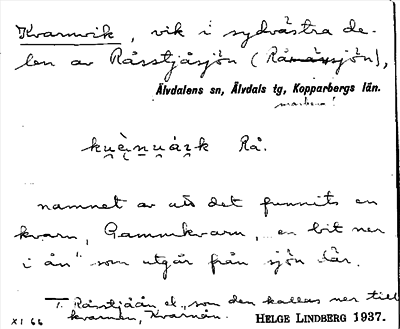 Kvarnvik, vik i sydvästra de-
len av Råsstjåsjön (Råsåsjön),
Älvdalens sn, Älvdals tg, Kopparbergs län.
Rå.
namnet av att det funnits en
kvarn, Gammkvarn, en bit ner
i ån¹ som utgår från sjön där.
1. Råsstjåån el., som den kallas ner till
kvarnen, Kvarnån.
XI 66 HELGE LINDBERG 1937.